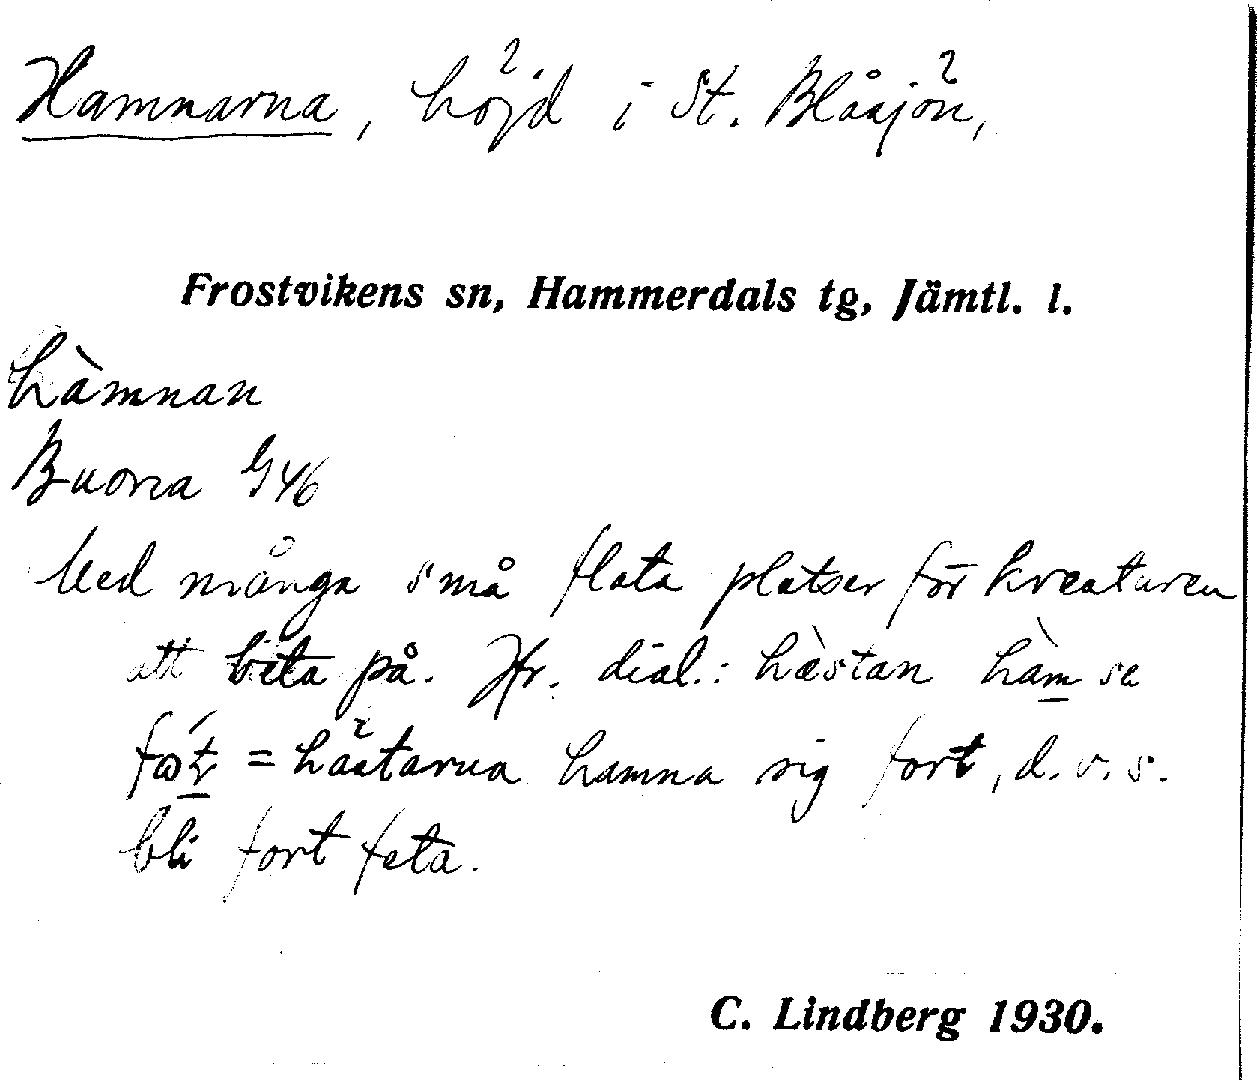 Hamnarna, höjd i St. Blåsjön,
Frostvikens sn, Hammerdals tg, Jämtl. l.
hàmnan
Buorra
Med många små flata platser för kreaturen
att bita på. Jfr. dial.: hæ̀stan hàm̲ se
= hästarna hamna sig fort, d.v.s.
bli fort feta.
C. Lindberg 1930.